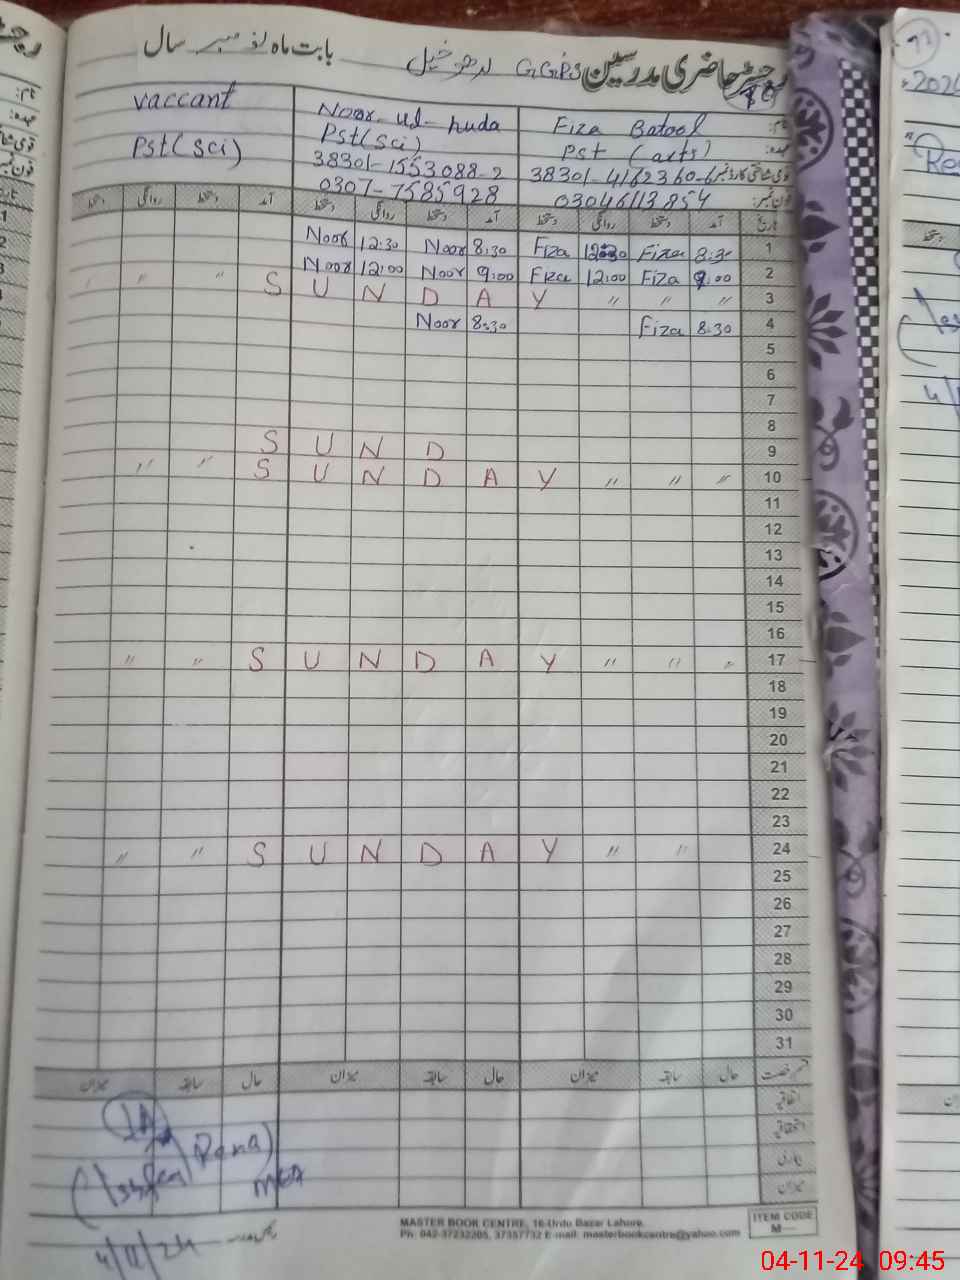 رجسٹر حاضری مدرسین GGPS بابت ماہ نومبر سال
نام: Fiza Batool Noor-ul-huda vaccant
عہدہ: Pst (arts) Pst(Sci) Pst(Sci)
قومی شناختی کارڈ نمبر 38301-4162360-6 38301-1553088-2
فون نمبر: 03046113854 0307-7585928
تاریخ آمد دستخط روانگی دستخط آمد دستخط روانگی دستخط آمد دستخط روانگی دستخط
1 8:30 Fiza 12:30 Fiza 8:30 Noor 12:30 Noor
2 9:00 Fiza 12:00 Fiza 9:00 Noor 12:00 Noor
3 " " " S U N D A Y " " "
4 8:30 Fiza 8:30 Noor
5
6
7
8
9 S U N D
10 " " " S U N D A Y " "
11
12
13
14
15
16
17 " " " S U N D A Y " "
18
19
20
21
22
23
24 " " S U N D A Y " "
25
26
27
28
29
30
31
قسم رخصت حال سابقہ میزان حال سابقہ میزان حال سابقہ میزان
اتفاقیہ
استحقاقیہ
بیماری
میزان
Rana)
MEA
4/11/24
MASTER BOOK CENTRE, 16-Urdu Bazar Lahore.
Ph: 042-37232205, 37357732 E-mail: masterbookcentre@yahoo.com
ITEM CODE
M—
04-11-24 09:45